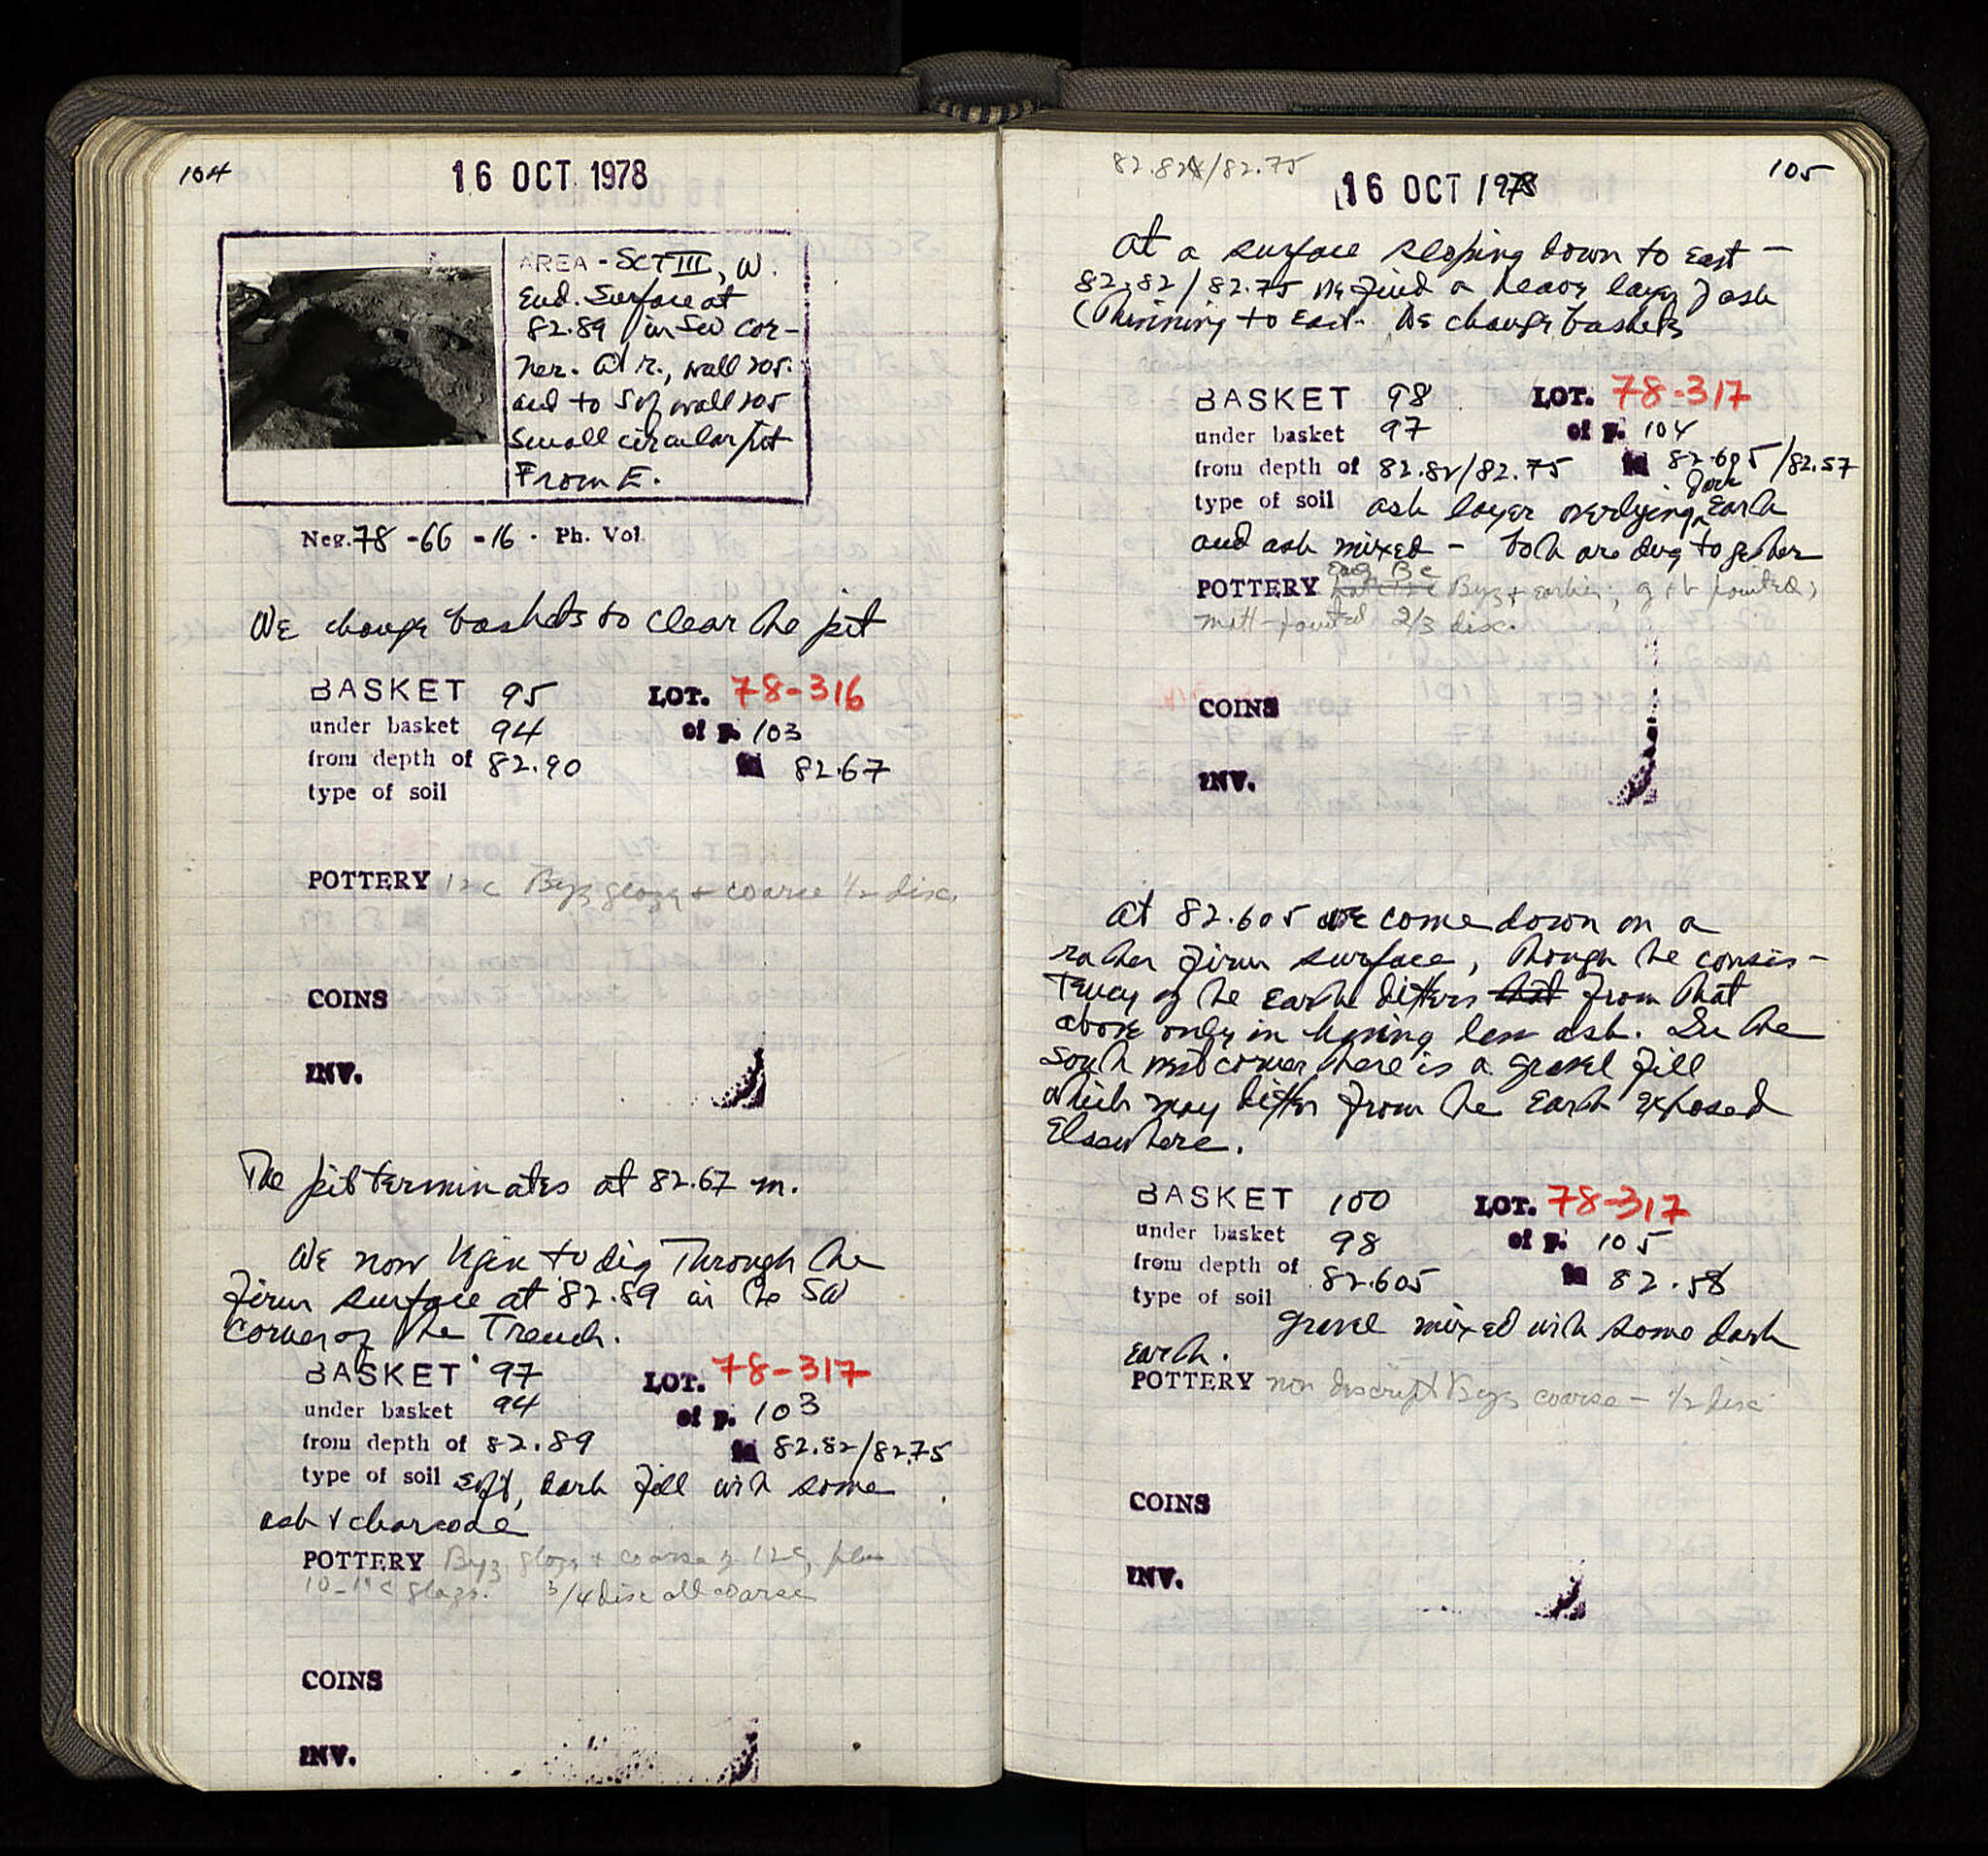 104
16 OCT 1978
AREA - SCT III, W.
End. Surface at
82.89 in SW cor-
ner. At r., wall 205.
and to S of wall 205
small circular pit
From E.
Neg. 78 -66 -16 · Ph. Vol.
We change baskets to clear the pit
BASKET 95 LOT. 78-316
under basket 94 of p. 103
from depth of 82.90 to 82.67
type of soil
POTTERY 12 c Byz glaze + coarse 1/2 disc.
COINS
INV.
The pit terminates at 82.67 m.
We now begin to dig through the
firm surface at 82.89 in the SW
corner of the Trench.
BASKET 97 LOT. 78-317
under basket 94 of p. 103
from depth of 82.89 to 82.82/82.75
type of soil soft, dark fill with some
ash & charcoal
POTTERY Byz glaze + coarse of 12c, plus
10-11 c glaze. 3/4 disc all coarse
COINS
INV.
82.82/82.75
16 OCT 1978
105
At a surface sloping down to East —
82.82/82.75 we find a heavy layer of ash
(Thinning to East. We change baskets
BASKET 98 LOT. 78-317
under basket 97 of p. 104
from depth of 82.82/82.75 to 82.605/82.57
type of soil ash layer overlying dark Earth
and ash mixed — both are dug together
POTTERY Early 13c Byz + earlier; g + b painted;
matt-painted 2/3 disc.
COINS
INV.
At 82.605 we come down on a
rather firm surface, though the consis-
tency of the Earth differs that from that
above only in having less ash. In the
South west corner there is a gravel fill
which may differ from the Earth exposed
Elsewhere.
BASKET 100 LOT. 78-317
under basket 98 of p. 105
from depth of 82.605 to 82.58
type of soil
gravel mixed with some dark
earth.
POTTERY non descript Byz coarse — 1/2 disc
COINS
INV.